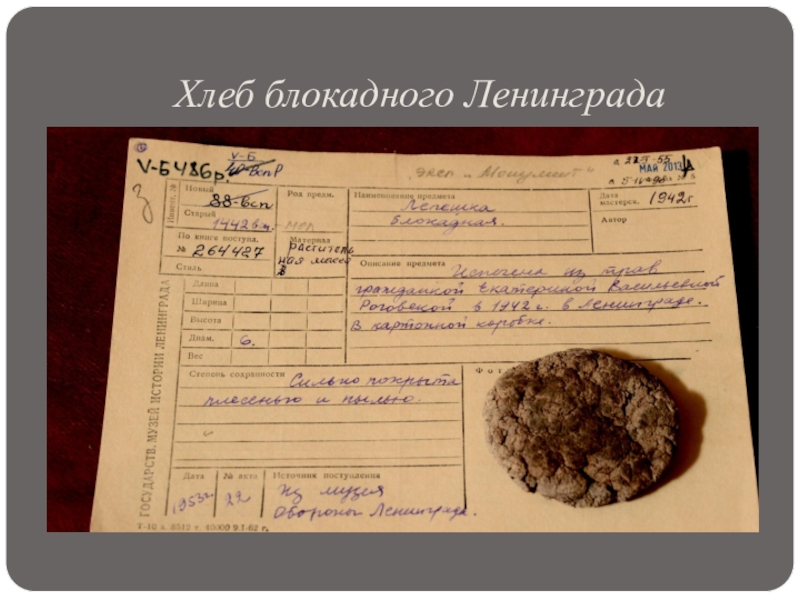 Хлеб блокадного Ленинграда
V-Б
V-Б486р.
эксп. „Монумент"
МАЙ 2013
Инвент. №
Новый
88-всп
Старый
1442вм.
Род предм.
Наименование предмета
Лепешка
блокадная.
Дата
мастерск.
1942г
Автор
По книге поступл.
№ 264427
Стиль
Материал
раститель
ная масса
Описание предмета
Испечена из трав
гражданкой Екатериной Васильевной
Роговской в 1942 г. в Ленинграде.
В картонной коробке.
Длина
Ширина
Высота
Диам. 6.
Вес
ГОСУДАРСТВ. МУЗЕЙ ИСТОРИИ ЛЕНИНГРАДА
Степень сохранности Сильно покрыта
плесенью и пылью.
Фот
Дата
1953г.
№ акта
22
Источник поступления
Из музея
Обороны Ленинграда.
Т-10 з. 8512 т. 40000 9.1-62 г.